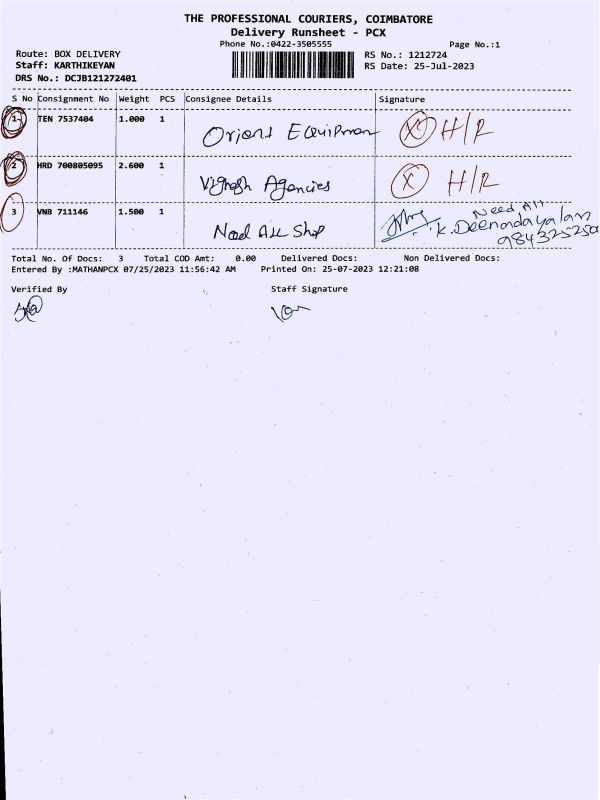 THE PROFESSIONAL COURIERS, COIMBATORE
Delivery Runsheet - PCX
Phone No.:0422-3505555 Page No.:1
Route: BOX DELIVERY RS No.: 1212724
Staff: KARTHIKEYAN RS Date: 25-Jul-2023
DRS No.: DCJB121272401
S No Consignment No Weight PCS Consignee Details Signature
1 TEN 7537404 1.000 1 Orient Equipman X H/R
2 HRD 700805095 2.600 1 Vignesh Agencies X H/R
3 VNB 711146 1.500 1 Need ALL Shop Need All
K. Deenadayalan
Total No. Of Docs: 3 Total COD Amt: 0.00 Delivered Docs: Non Delivered Docs:
Entered By :MATHANPCX 07/25/2023 11:56:42 AM Printed On: 25-07-2023 12:21:08
Verified By Staff Signature